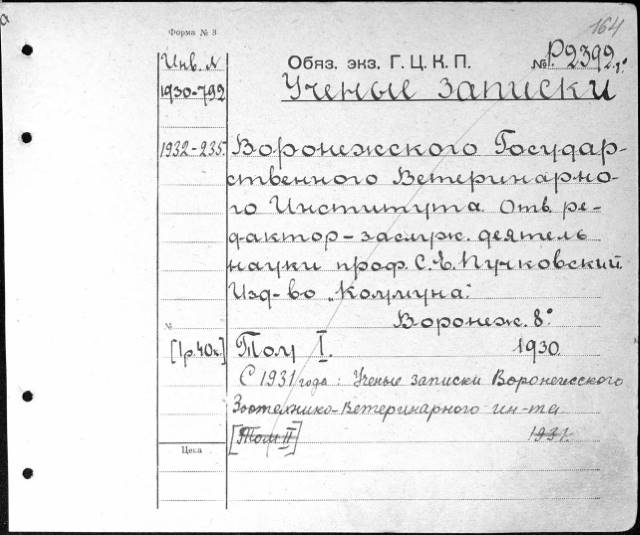 а
164
Форма № 3
Инв. №
Обяз. экз. Г. Ц. К. П.
№ Р2392,1°
1930-792
Ученые записки
1932-235.
Воронежского Государ-
ственного Ветеринарно-
го Института. Отв. ре-
дактор-заслуж. деятель
науки проф. С. Е. Пучковский.
Изд-во „Коммуна".
Воронеж. 8°
№
[1р.40к.]
Том I. 1930.
С 1931 года: Ученые записки Воронежского
Зоотехнико-Ветеринарного ин-та
[Том II] 1931.
Цена